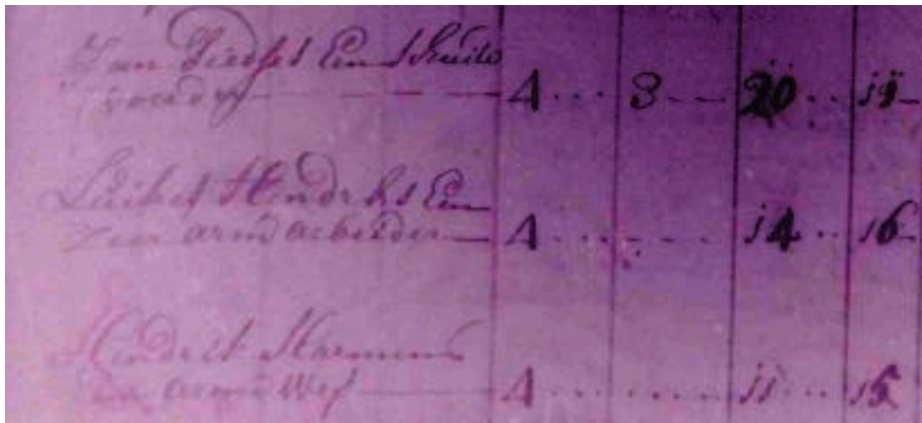 Jan Tiedses Een Schuite
voerder 4 3 20 12
Luities Hendriks Een
Zeer arm arbeider 4 14 16
Hindrik Harmens
Een arme Wef 4 11 15